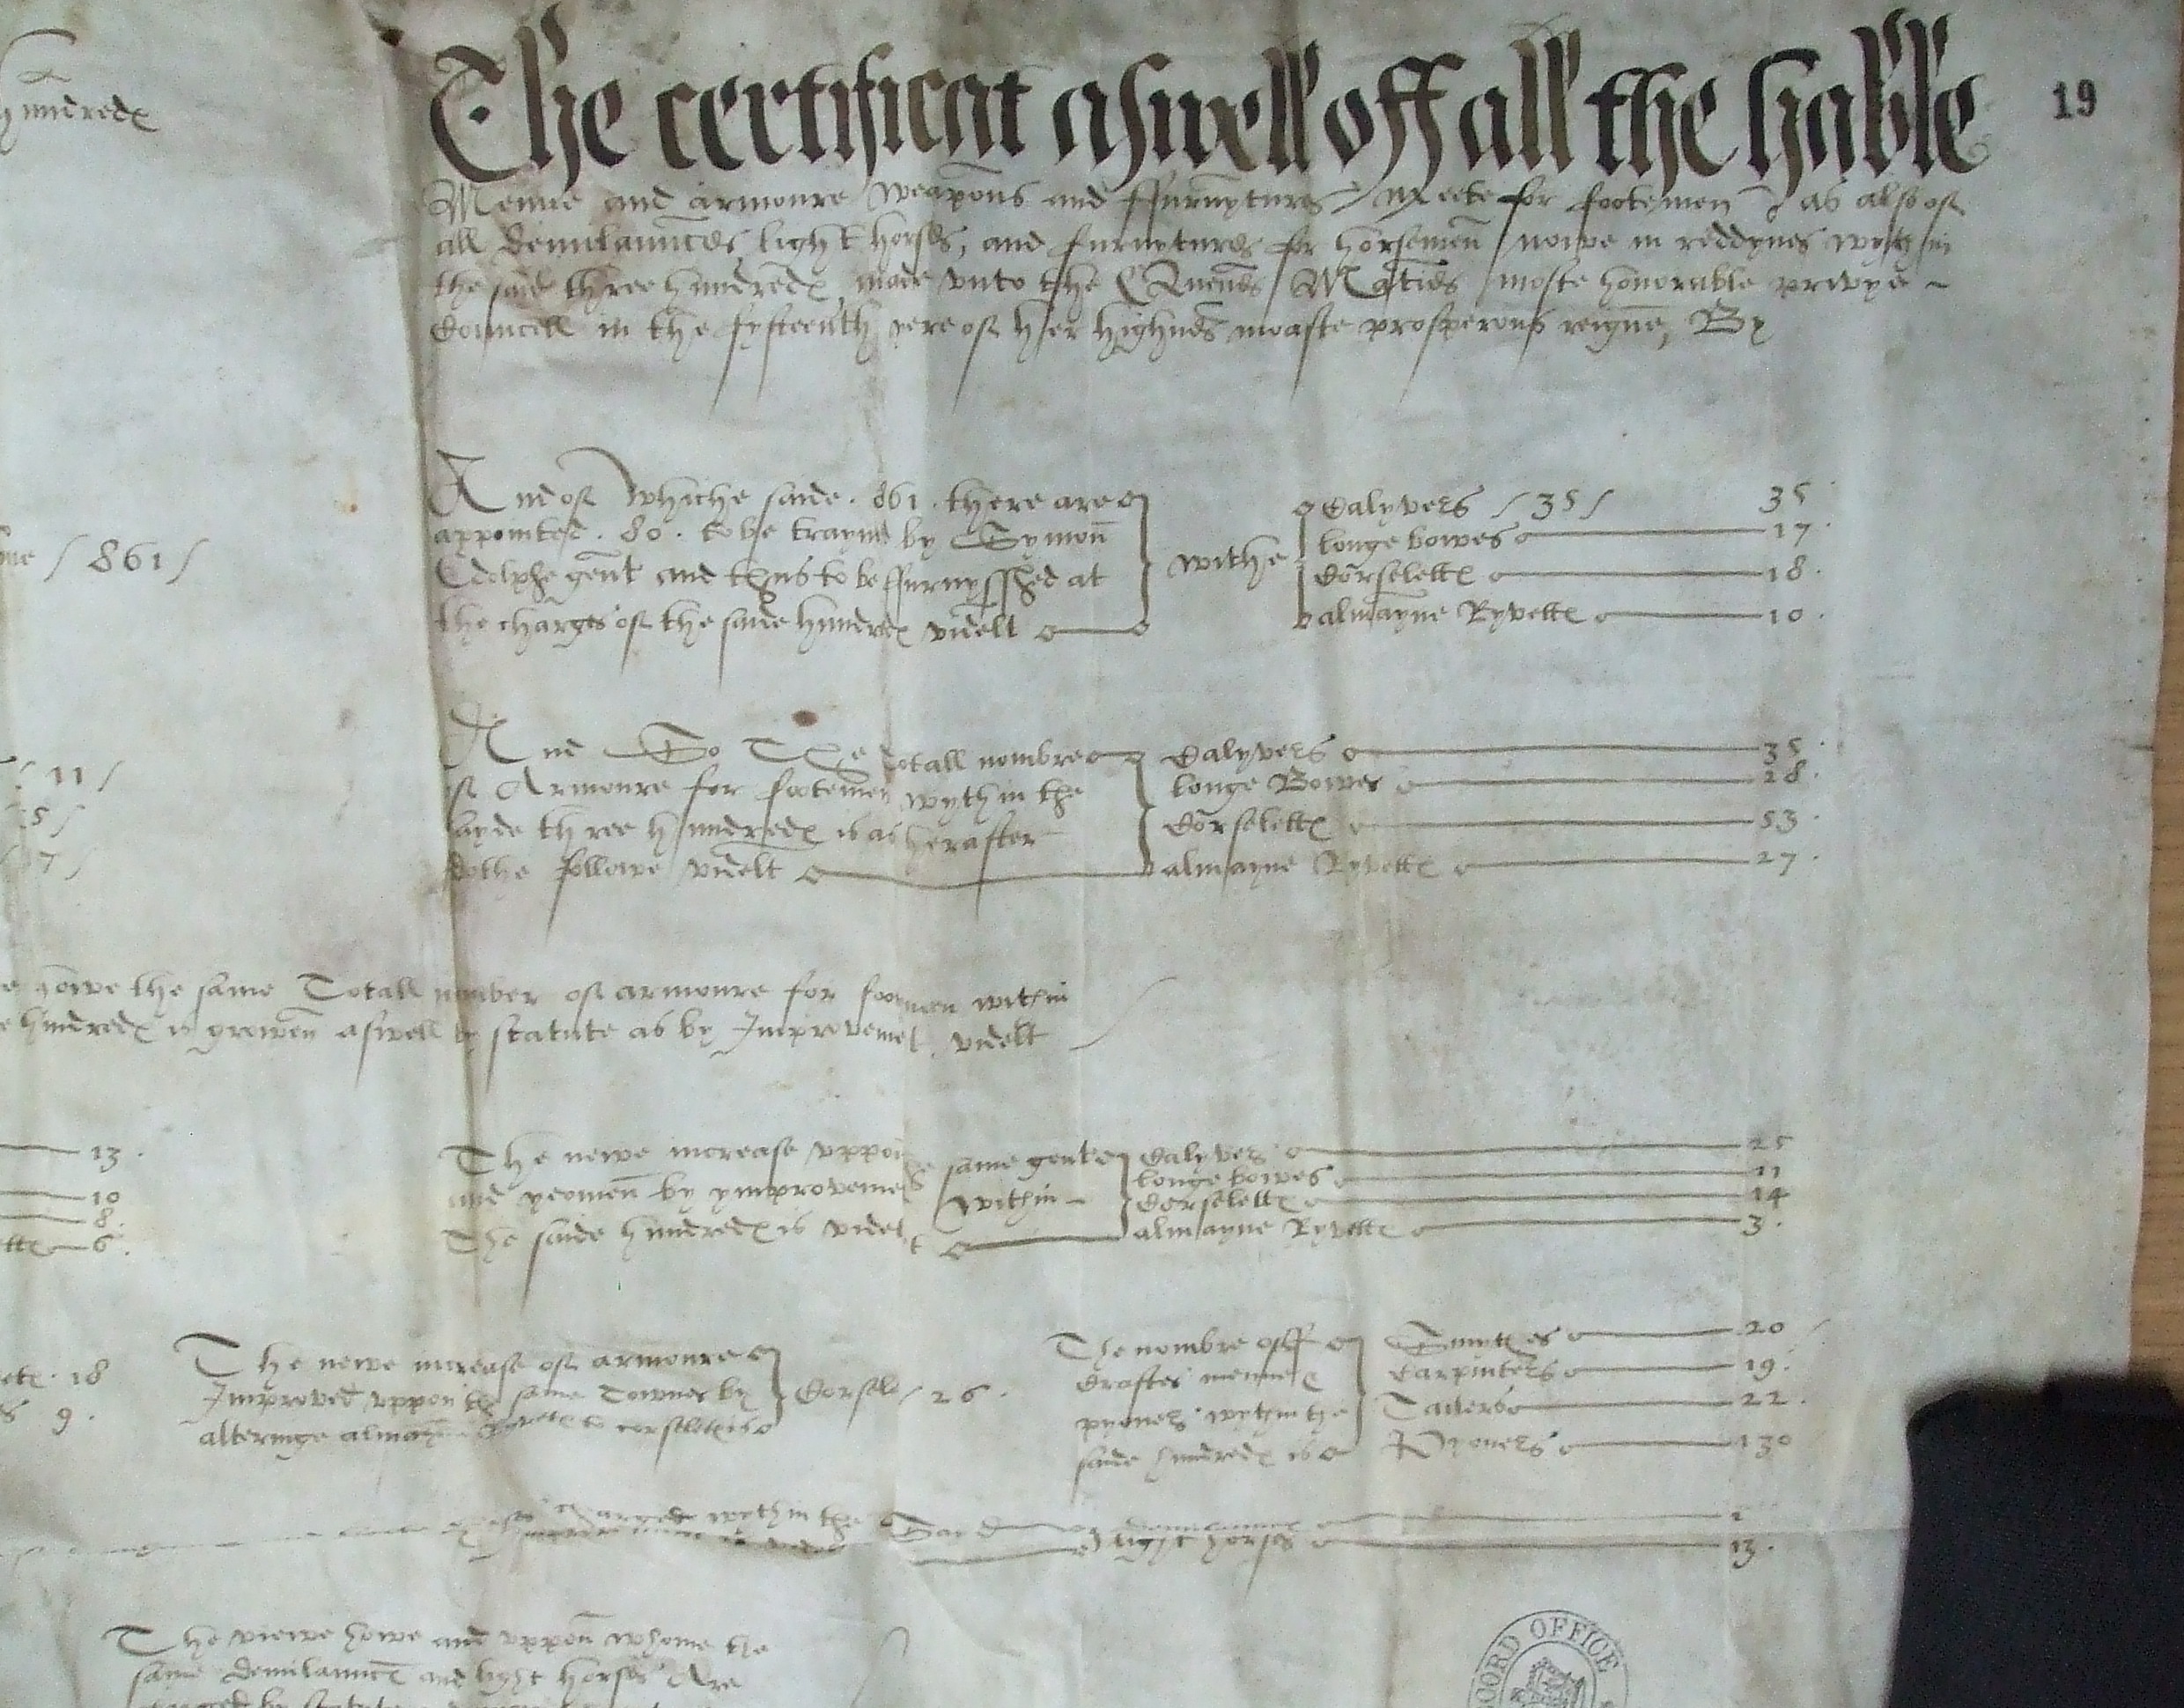 hundredes
The certificat aswell off all the hable
19
Menne and armoure weapons and ffurnytures meete for footemen as also of
all demilaunces, light horses, and furnytures for horsemen nowe in reddynes wythin
the said three hundredes, made unto the Quenes Maties moste honorable prevye
Councell in the fyfteenth yere of her highnes moaste prosperous reigne, By
861
And of whiche saide . 861 . there are
appointed . 80 . to be trayned by Symon
gent and thus to be ffurnysshed at
the charges of the saide hundredes videlt
withe
Calyvers 35 35
longe bowes 17
Corselettes 18
almayne Ryvettes 10
11
5
7
And So The totall nombre
of Armoure for footemen wythin the
sayde three hundredes is as herafter
dothe followe videlt
Calyvers 35
longe Bowes 28
Corselettes 53
almayne Ryvettes 27
howe the same Totall number of armoure for footmen within
hundredes is growen aswell by statute as by Improvemet videlt
13
10
8
6
The newe increase uppon the same gent
and yeomen by ymprovement within
The saide hundredes is videlt
Calyvers 25
longe bowes 11
Corselettes 14
almayne Ryvettes 3
18
9
The newe increase of armoure
Improved uppon the same Townes by
alteringe almayne Ryvettes to corselettes is
Corsele 26
The nombre off
Craftes menne &
pyoners wythin the
saide hundredes is
Smythes 20
Carpinters 19
Tailers 22
Pyoners 130
charged wythin the Said
demilaunces 1
light horses 13
The viewe howe and uppon whome the
same demilaunces and light horses Are
charged by statute
RECORD OFFICE